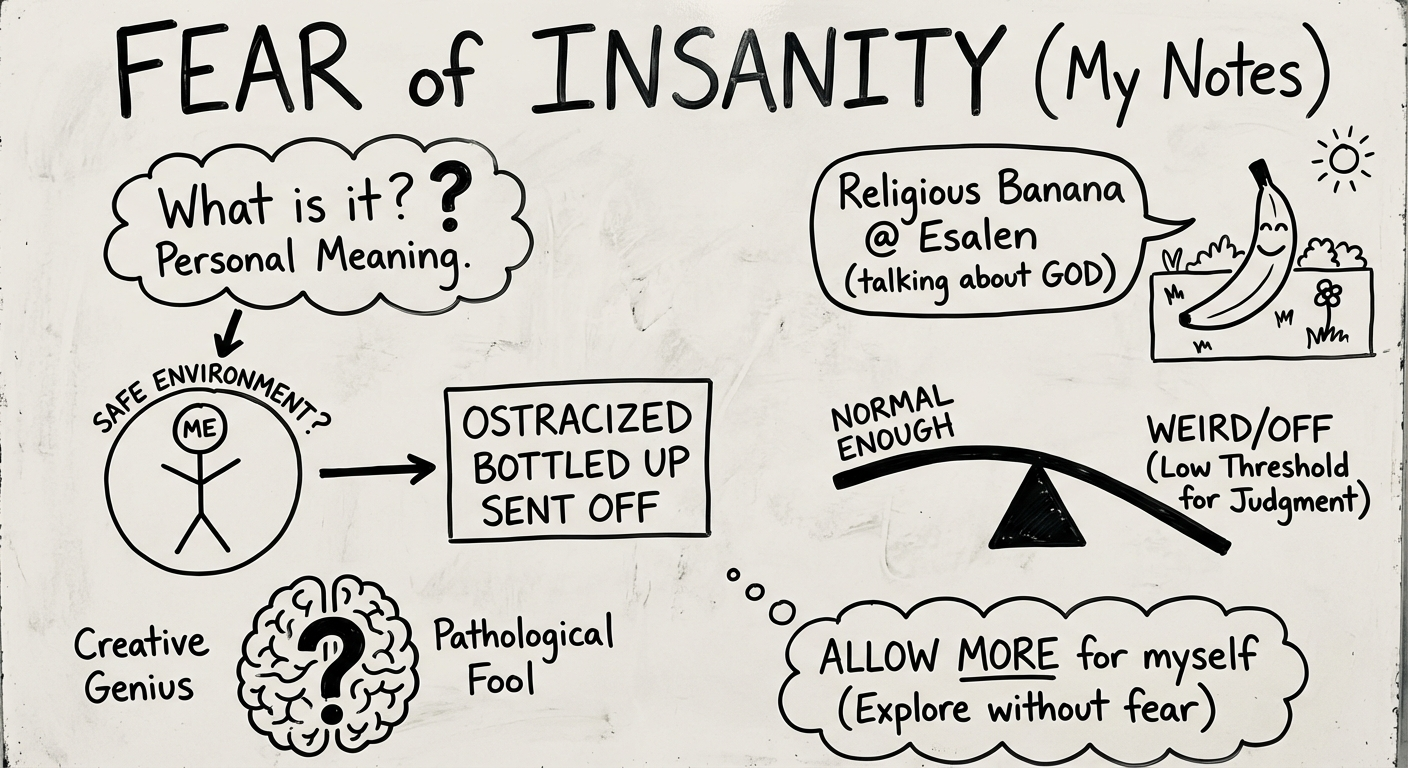 FEAR of INSANITY (My Notes)
What is it? ?
Personal Meaning.
SAFE ENVIRONMENT?
ME
OSTRACIZED
BOTTLED UP
SENT OFF
Creative
Genius
?
Pathological
Fool
Religious Banana
@ Esalen
(talking about GOD)
NORMAL
ENOUGH
WEIRD/OFF
(Low Threshold
for Judgment)
ALLOW MORE for myself
(Explore without fear)